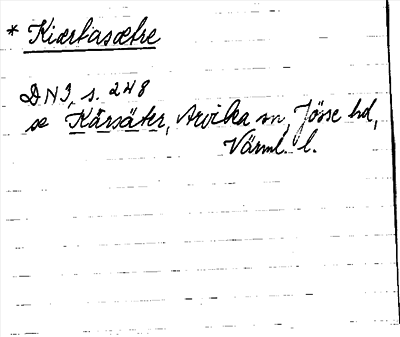 * Kiærlasætre
DNJ, s. 248
se Kärsäter, Arvika sn, Jösse hd,
Värml. l.